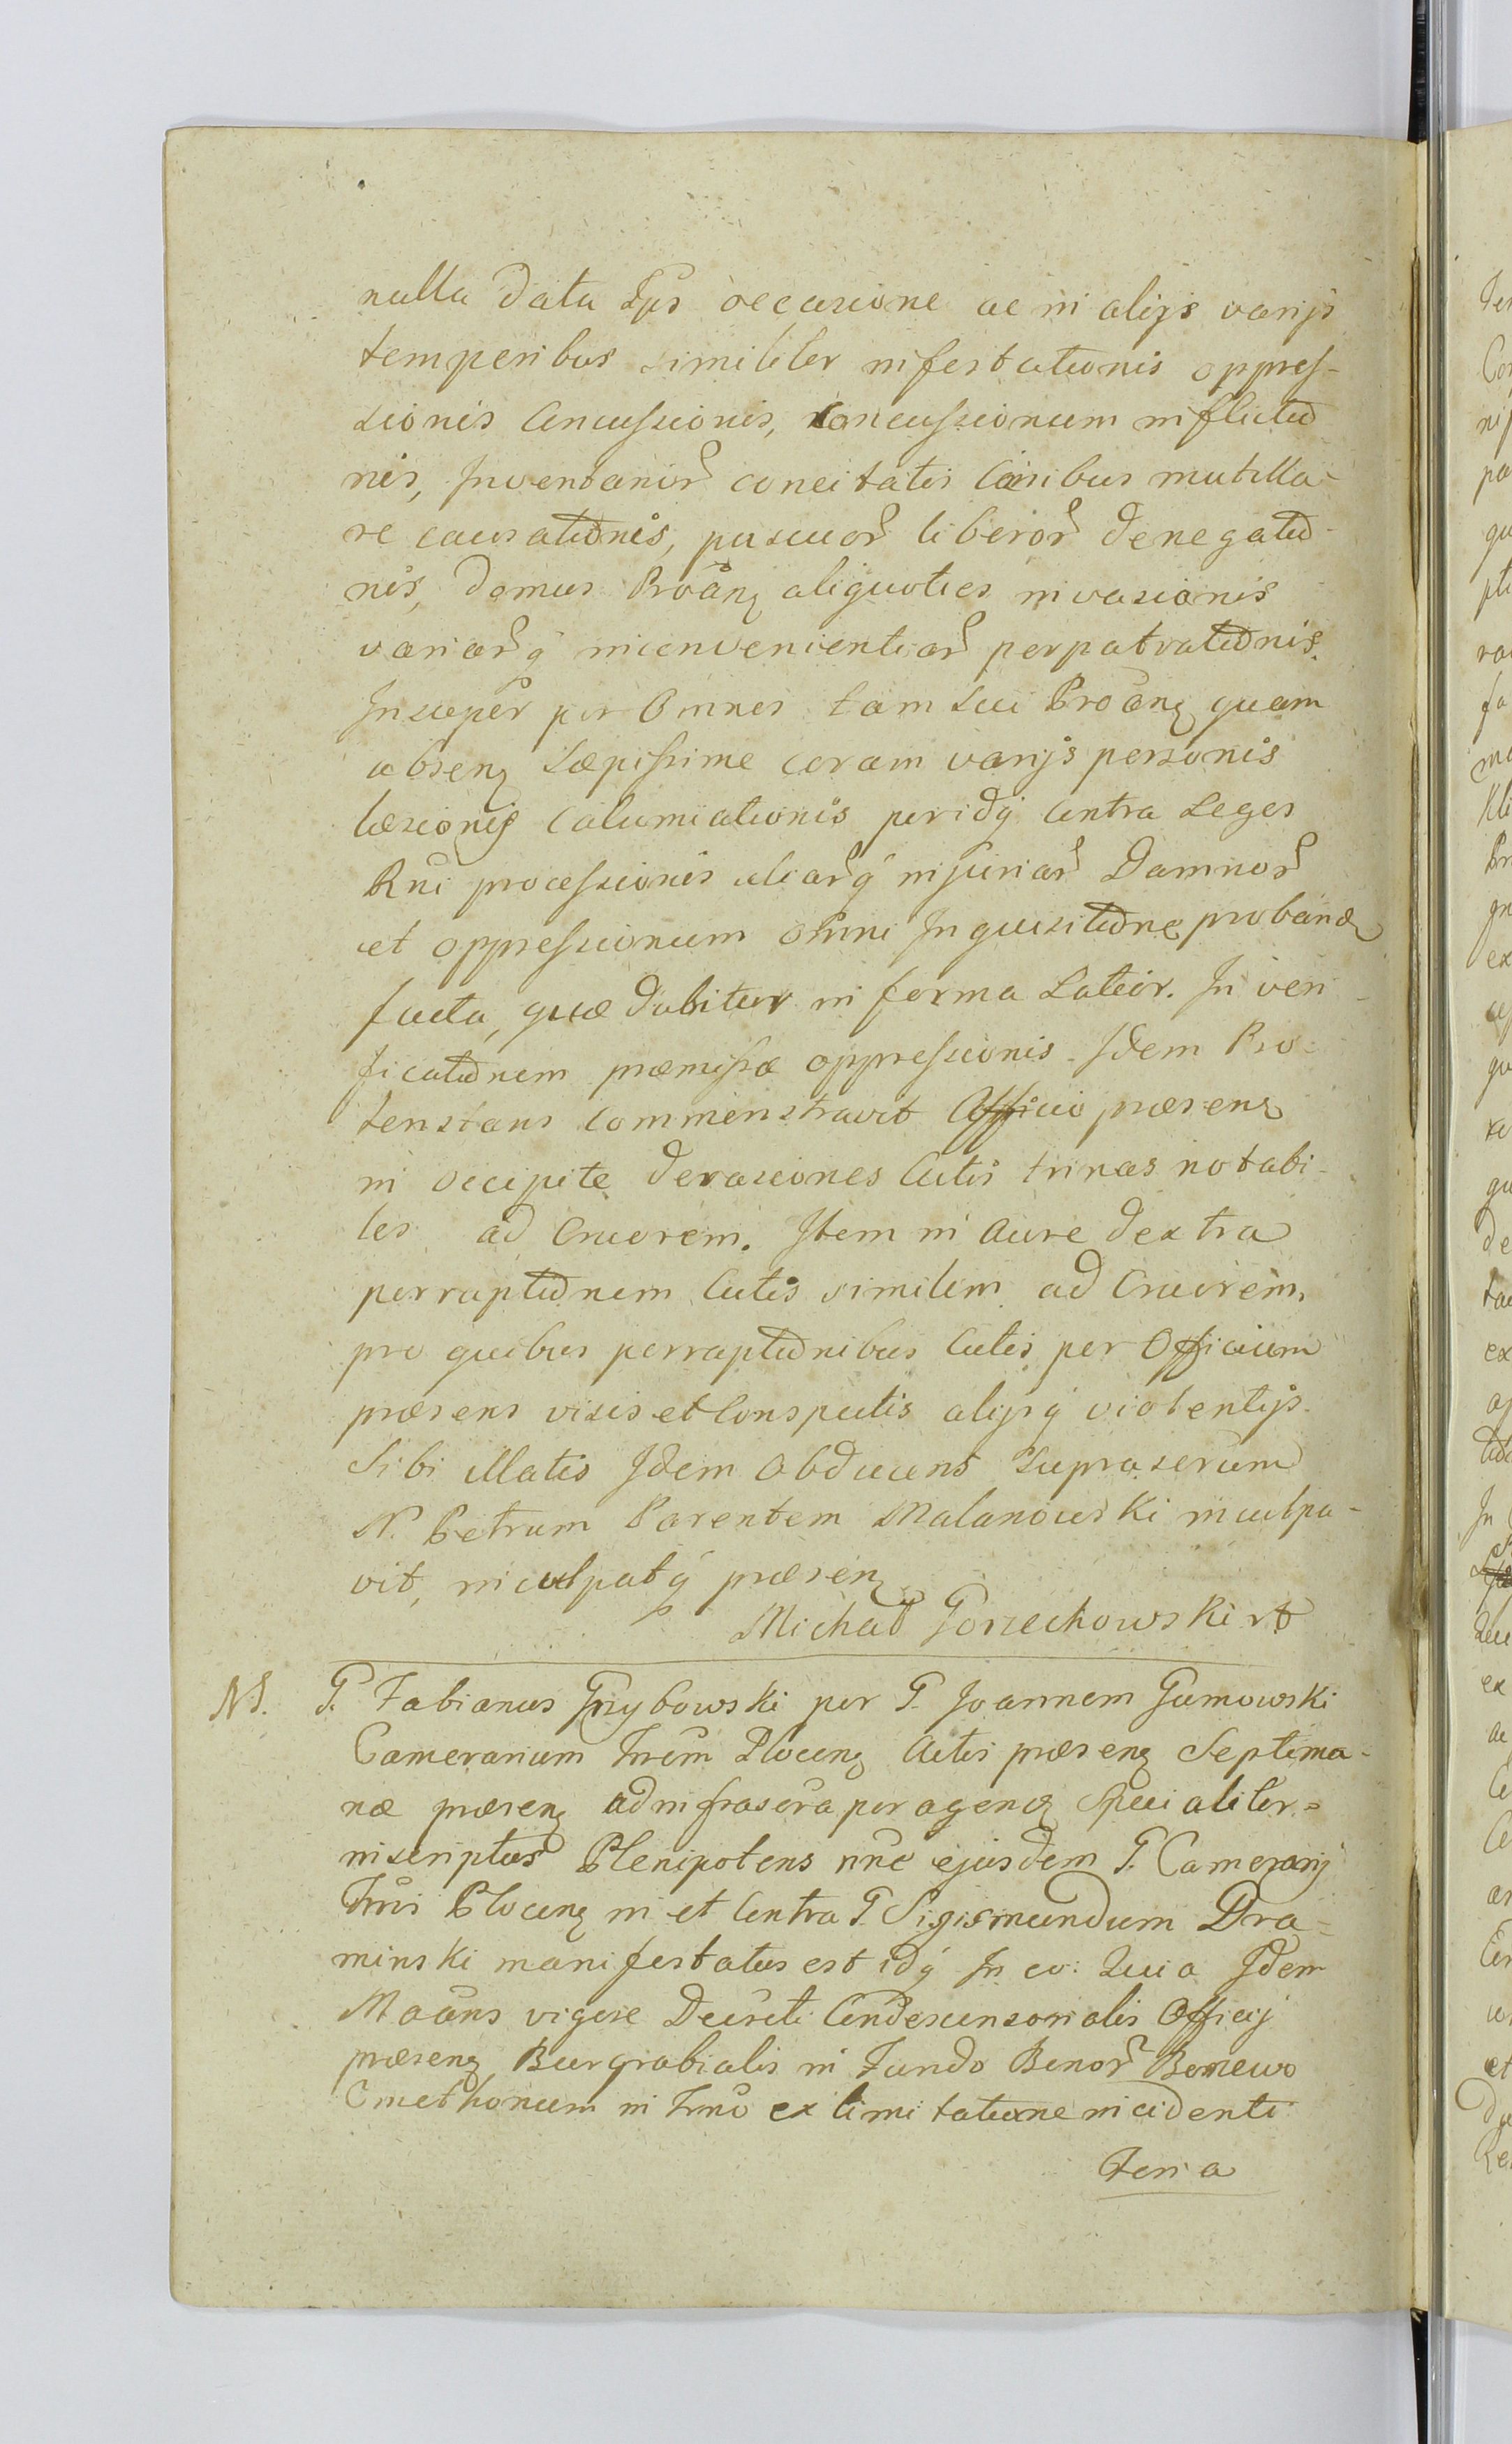 nulla data Ips occasione ac in alijs varijs
temporibus similiter infestationis oppres-
sionis Concussionis, concussionum inflictio
nis, Inventarior concitatis Canibus mutilla-
re causationis, pascuor liberor denegatio-
nis, domus Proãnz aliquoties invasionis
variarq inconvenientiar perpatrationis.
Insuper per Omnes tam sui Proãnz quam
absenz Sæpissime coram varijs personis
læsionis Calumiationis peridq Contra Leges
Rni processionis aliarq injuriar Damnor
et oppressionum omni Inquisitione proband
facta, quæ dabitur in forma Latior. In veri-
ficationem præmissæ oppressionis Idem Pro-
tenstans Commenstravit Officio præsenz
in occipite derasiones Cutis trinas notabi-
les ad Cruorem. Item in Aure dextra
perraptionem Cutis similem ad Cruorem,
pro quibus perraptionibus Cutis per Officium
præsens visis et Conspectis alijsq violentijs
Sibi illatis Idem Obducens suprascrum
N. Petrum Parentem Malanowski inculpa-
vit, inculpatq præsenz
Michał Gorzechowski
NS. G. Fabianus Grzybowski per G. Joannem Gumowski
Camerarium Trrem Plocenz Actis præsenz Septima-
næ præsenz ad infrascra peragenda Specialiter
inscriptus Plenipotens nne ejusdem G. Camerarij
Trris Plocenz in et Contra G. Sigismundum Dra-
minski manifestatus est idq In eo: Quia Idem
Maãns vigore Decreti Condescensorialis Officij
præsenz Burgrabialis in Fundo Bonor Bomewo
Cmethonum in Trno ex limitatione incidenti
Feria